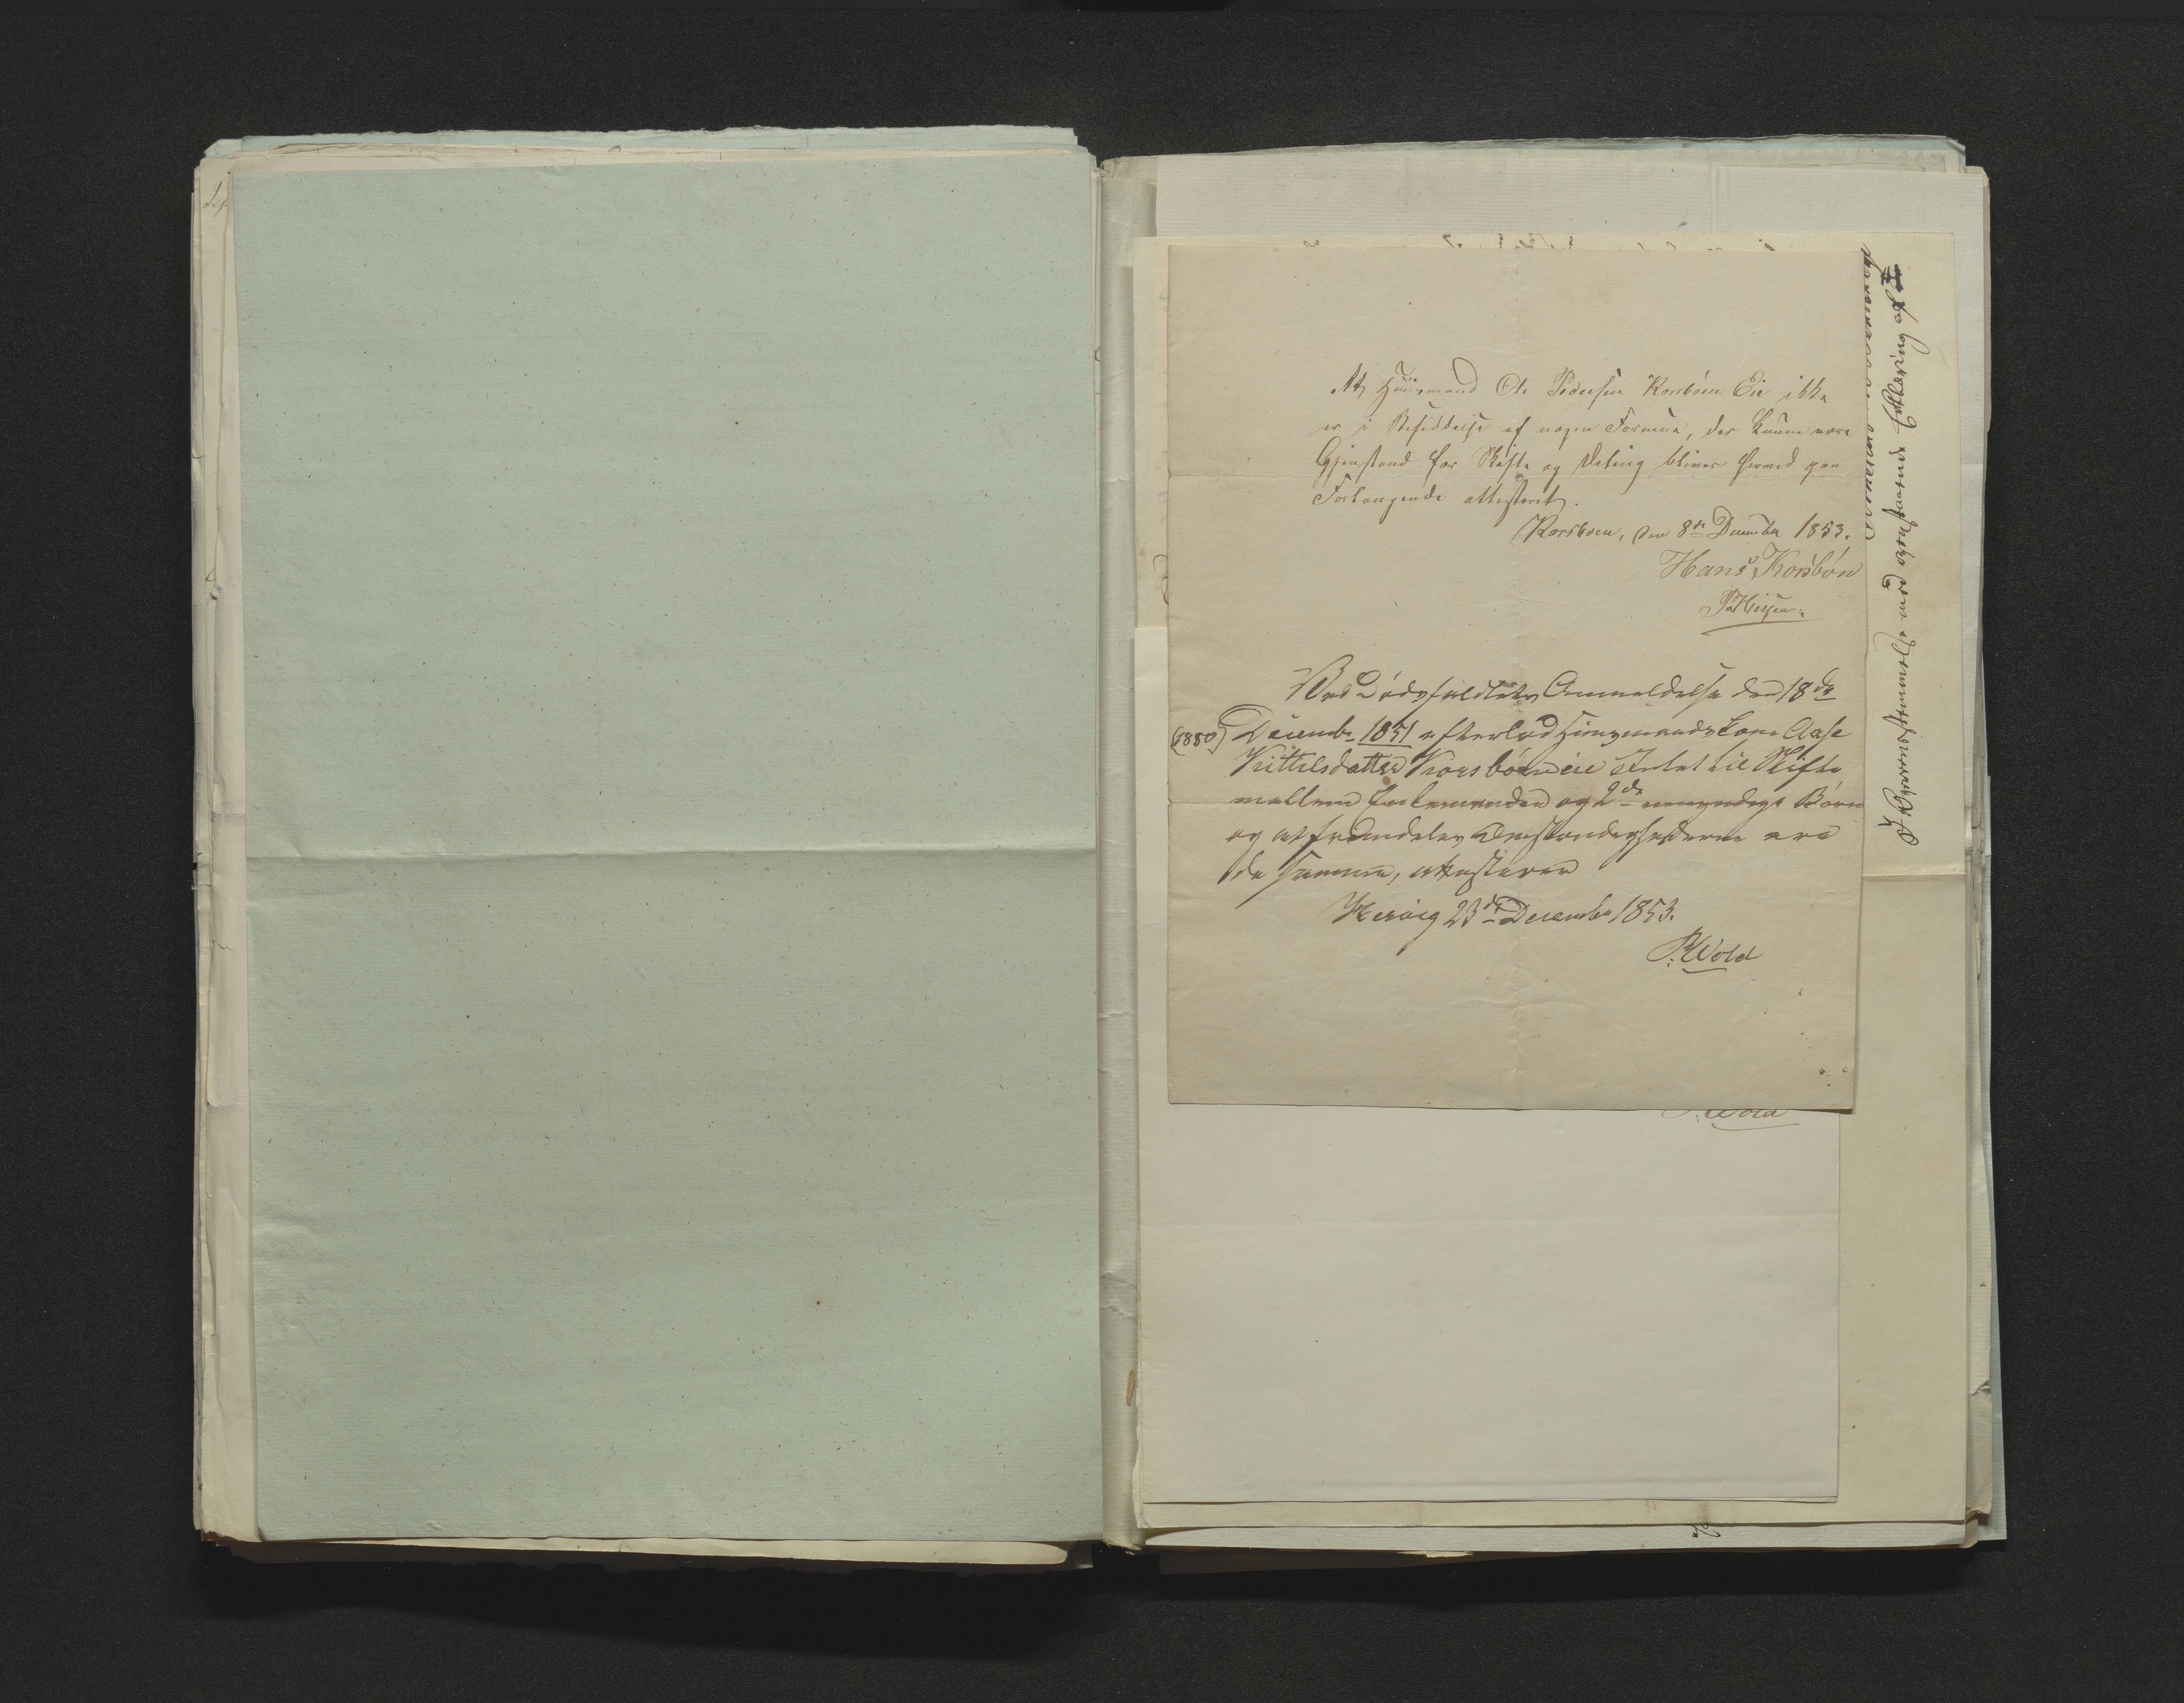 At Huusmand Ole Pedersen Korsbøen Eie ikke
er i Besiddelse af nogen Formue, der kunne være
Gjenstand for Skifte og Deling bliver herved paa
Forlangende attesteret.
Korsbøen, den 8de December 1853.
Hans Korsbøn
Ved Dødsfaldets Anmeldelse den 18de
(1850) December 1851 efterlod Huusmandskone Aase
Kittilsdatter Korsbøen eie Intet til Skifte
mellem Enkemanden og 2de umyndige Børn
og at fremdeles Omstændighederne ere
de samme, attesterer
Hesøig 23de December 1853.
P. Wold
I Overensstemmelse med paastaaende Erklæring og
P. Wold